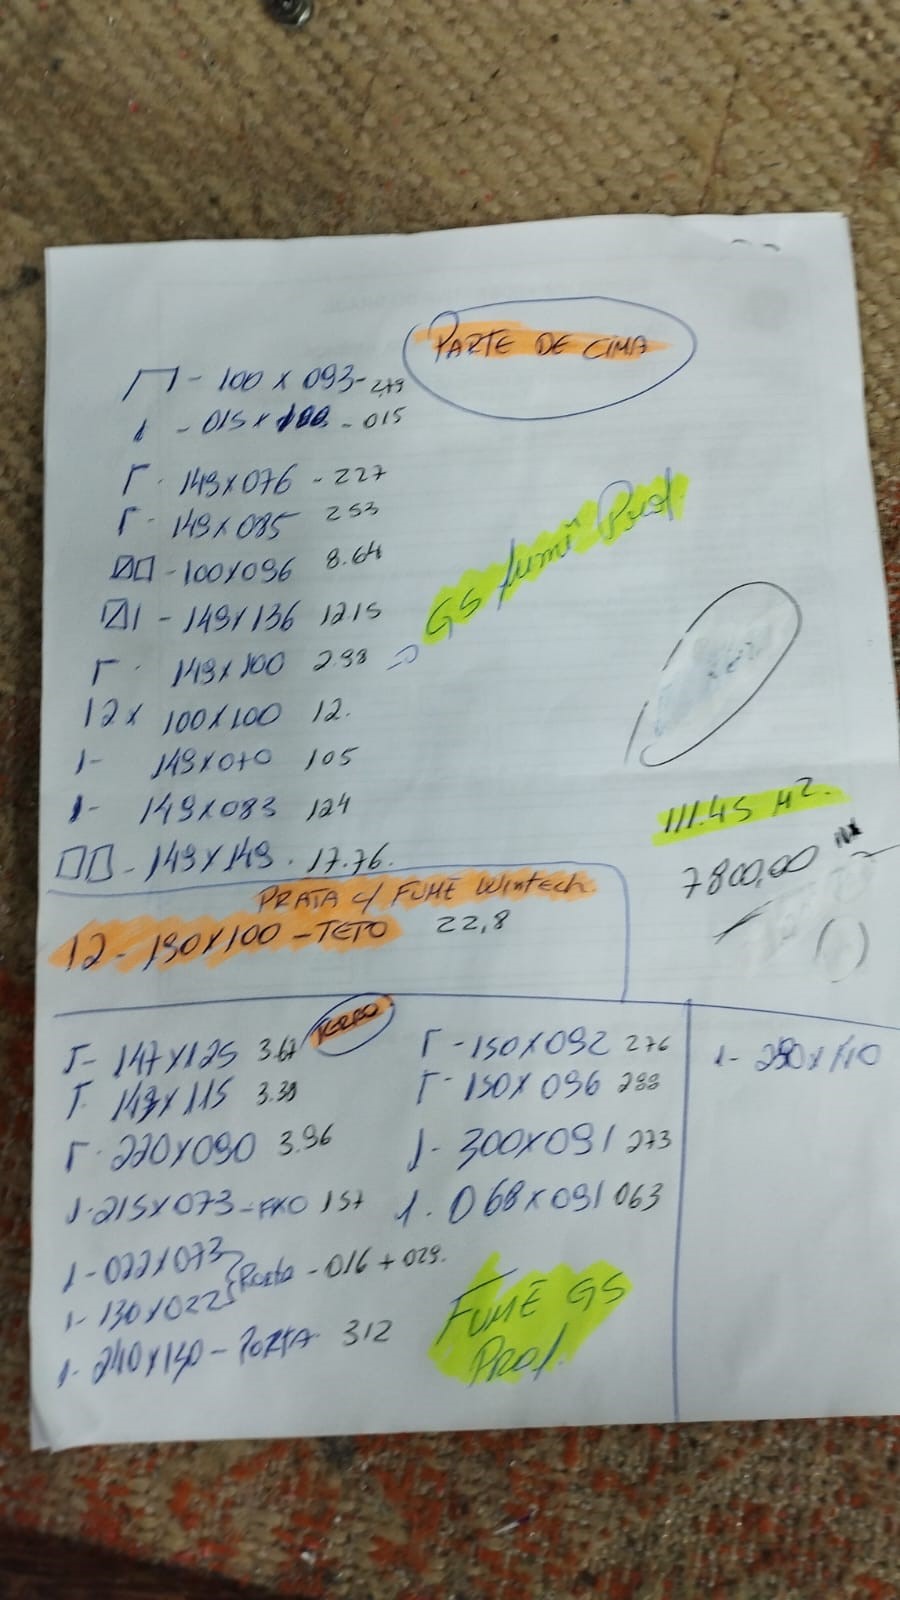 PARTE DE CIMA
- 100 x 093 - 2,79
1 - 015 x 100 - 015
149 x 076 - 227
149 x 085 253
- 100 x 096 8.64
1 - 149 x 136 1215
149 x 100 2.98
GS fumê Prof.
12 x 100 x 100 12.
1 - 149 x 070 105
1 - 149 x 083 124
- 149 x 149 . 17.76.
111.45 M².
7800,00
PRATA c/ FUMÊ Wintech
12 - 190 x 100 - TETO 22,8
- 147 x 125 3.67
149 x 115 3.39
220 x 090 3.96
1 - 215 x 073 - FIXO 157
1 - 022 x 073
1 - 130 x 022 Porta - 016 + 029.
1 - 240 x 130 - PORTA 312
- 150 x 092 276
- 150 x 096 288
1 - 300 x 091 273
1. 068 x 091 063
FUMÊ GS
Prof.